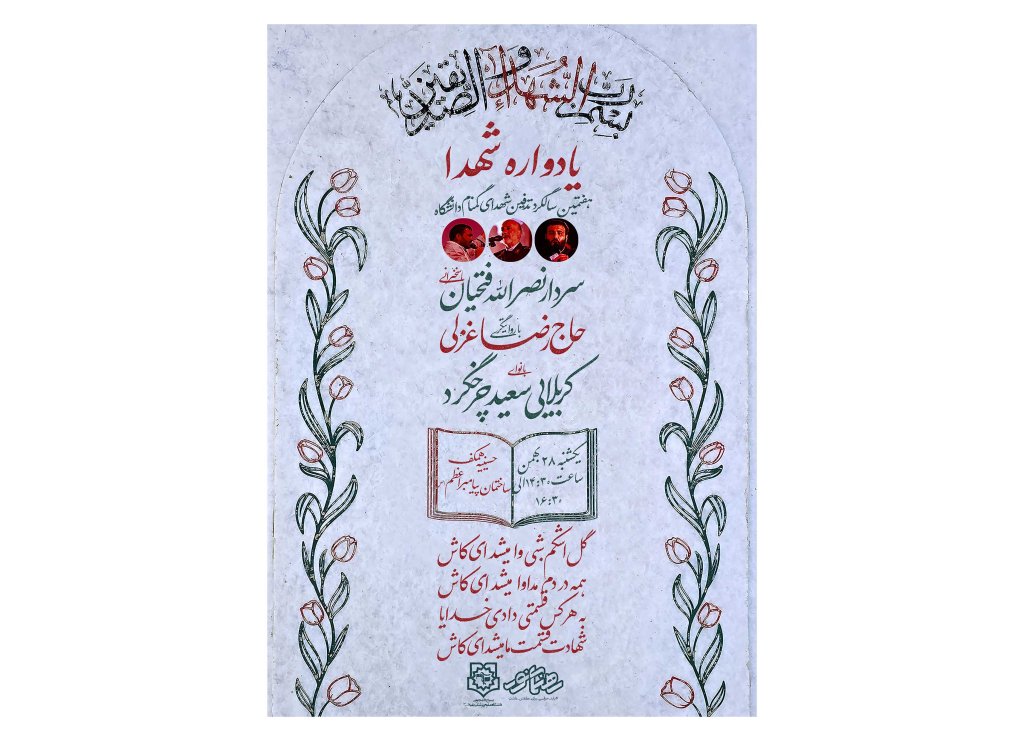 بسم رب الشهداء و الصدیقین
یادواره شهدا
هفتمین سالگرد تدفین شهدای گمنام دانشگاه
با سخنرانی
سردار نصرالله فتحیان
با روایتگری
حاج رضا غزلی
با نوای
کربلایی سعید چرخگرد
یکشنبه ۲۸ بهمن
ساعت ۱۴:۳۰ الی
۱۶:۳۰
حسینیه همکف
ساختمان پیامبر اعظم
گل اشکم شبی وا میشد ای کاش
همه دردم مداوا میشد ای کاش
به هرکس قسمتی دادی خدایا
شهادت قسمت ما میشد ای کاش